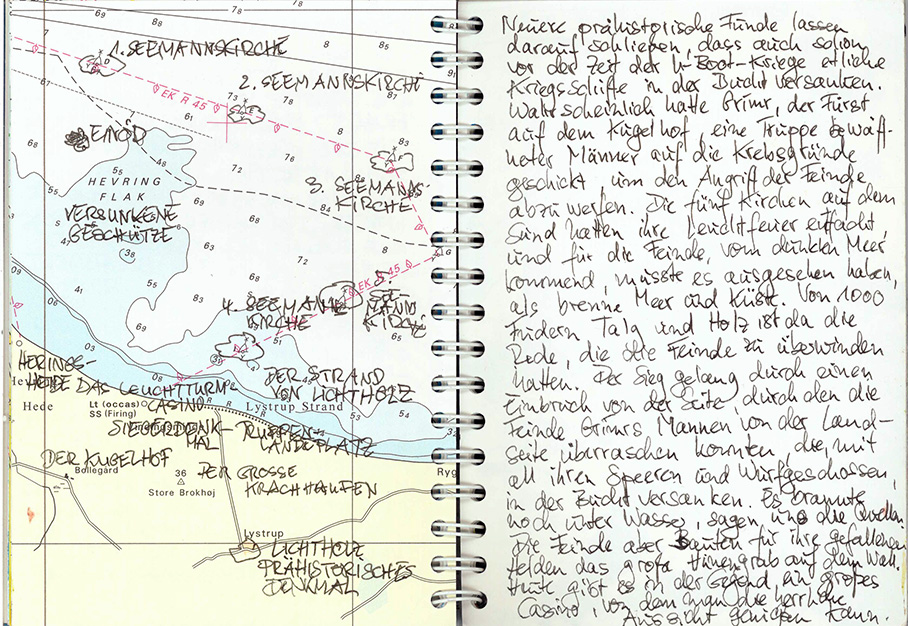 1. SEEMANNSKIRCHE
2. SEEMANNSKIRCHE
EK R 45
EINÖD
HEVRING
FLAK
VERSUNKENE
GESCHÜTZE
3. SEEMANNS-
KIRCHE
EK R 45
4. SEEMANNS
KIRCHE
5.
SEE-
MANNS
KIRCHE
HERINGS-
HEIDE
Hede
DAS LEUCHTTURM
CASINO
Lt (occas)
SS (Firing)
DER STRAND
VON LICHTHOLZ
Lystrup Strand
SIEGERDENK-
MAL
TRUPPEN-
LANDEPLATZ
DER KUGELHOF
Bøllegård
36
Store Brokhøj
DER GROSSE
KRACHHAUFEN
Ryg
Lystrup
LICHTHOLZ
PRÄHISTORISCHES
DENKMAL
Neuere prähistorische Funde lassen
darauf schließen, dass auch schon
vor der Zeit der U-Boot-Kriege etliche
Kriegsschiffe in der Bucht versanken.
Wahrscheinlich hatte Grimr, der Fürst
auf dem Kugelhof, eine Truppe bewaff-
neter Männer auf die Krebsgründe
geschickt um den Angriff der Feinde
abzuwerfen. Die fünf Kirchen auf dem
Sund hatten ihre Leuchtfeuer entfacht,
und für die Feinde, vom dunklen Meer
kommend, musste es ausgesehen haben,
als brenne Meer und Küste. Von 1000
Fudern Talg und Holz ist da die
Rede, die die Feinde zu überwinden
hatten. Der Sieg gelang durch einen
Einbruch von der Seite, durch den die
Feinde Grimrs Mannen von der Land-
seite überraschen konnten, die, mit
all ihren Speeren und Wurfgeschossen,
in der Bucht versanken. Es brannte
noch unter Wasser, sagen uns die Quellen.
Die Feinde aber bauten für ihre gefallenen
Helden das große Hünengrab auf dem Wall.
Heute gibt es in der Gegend ein großes
Casino, von dem man die herrliche
Aussicht genießen kann.